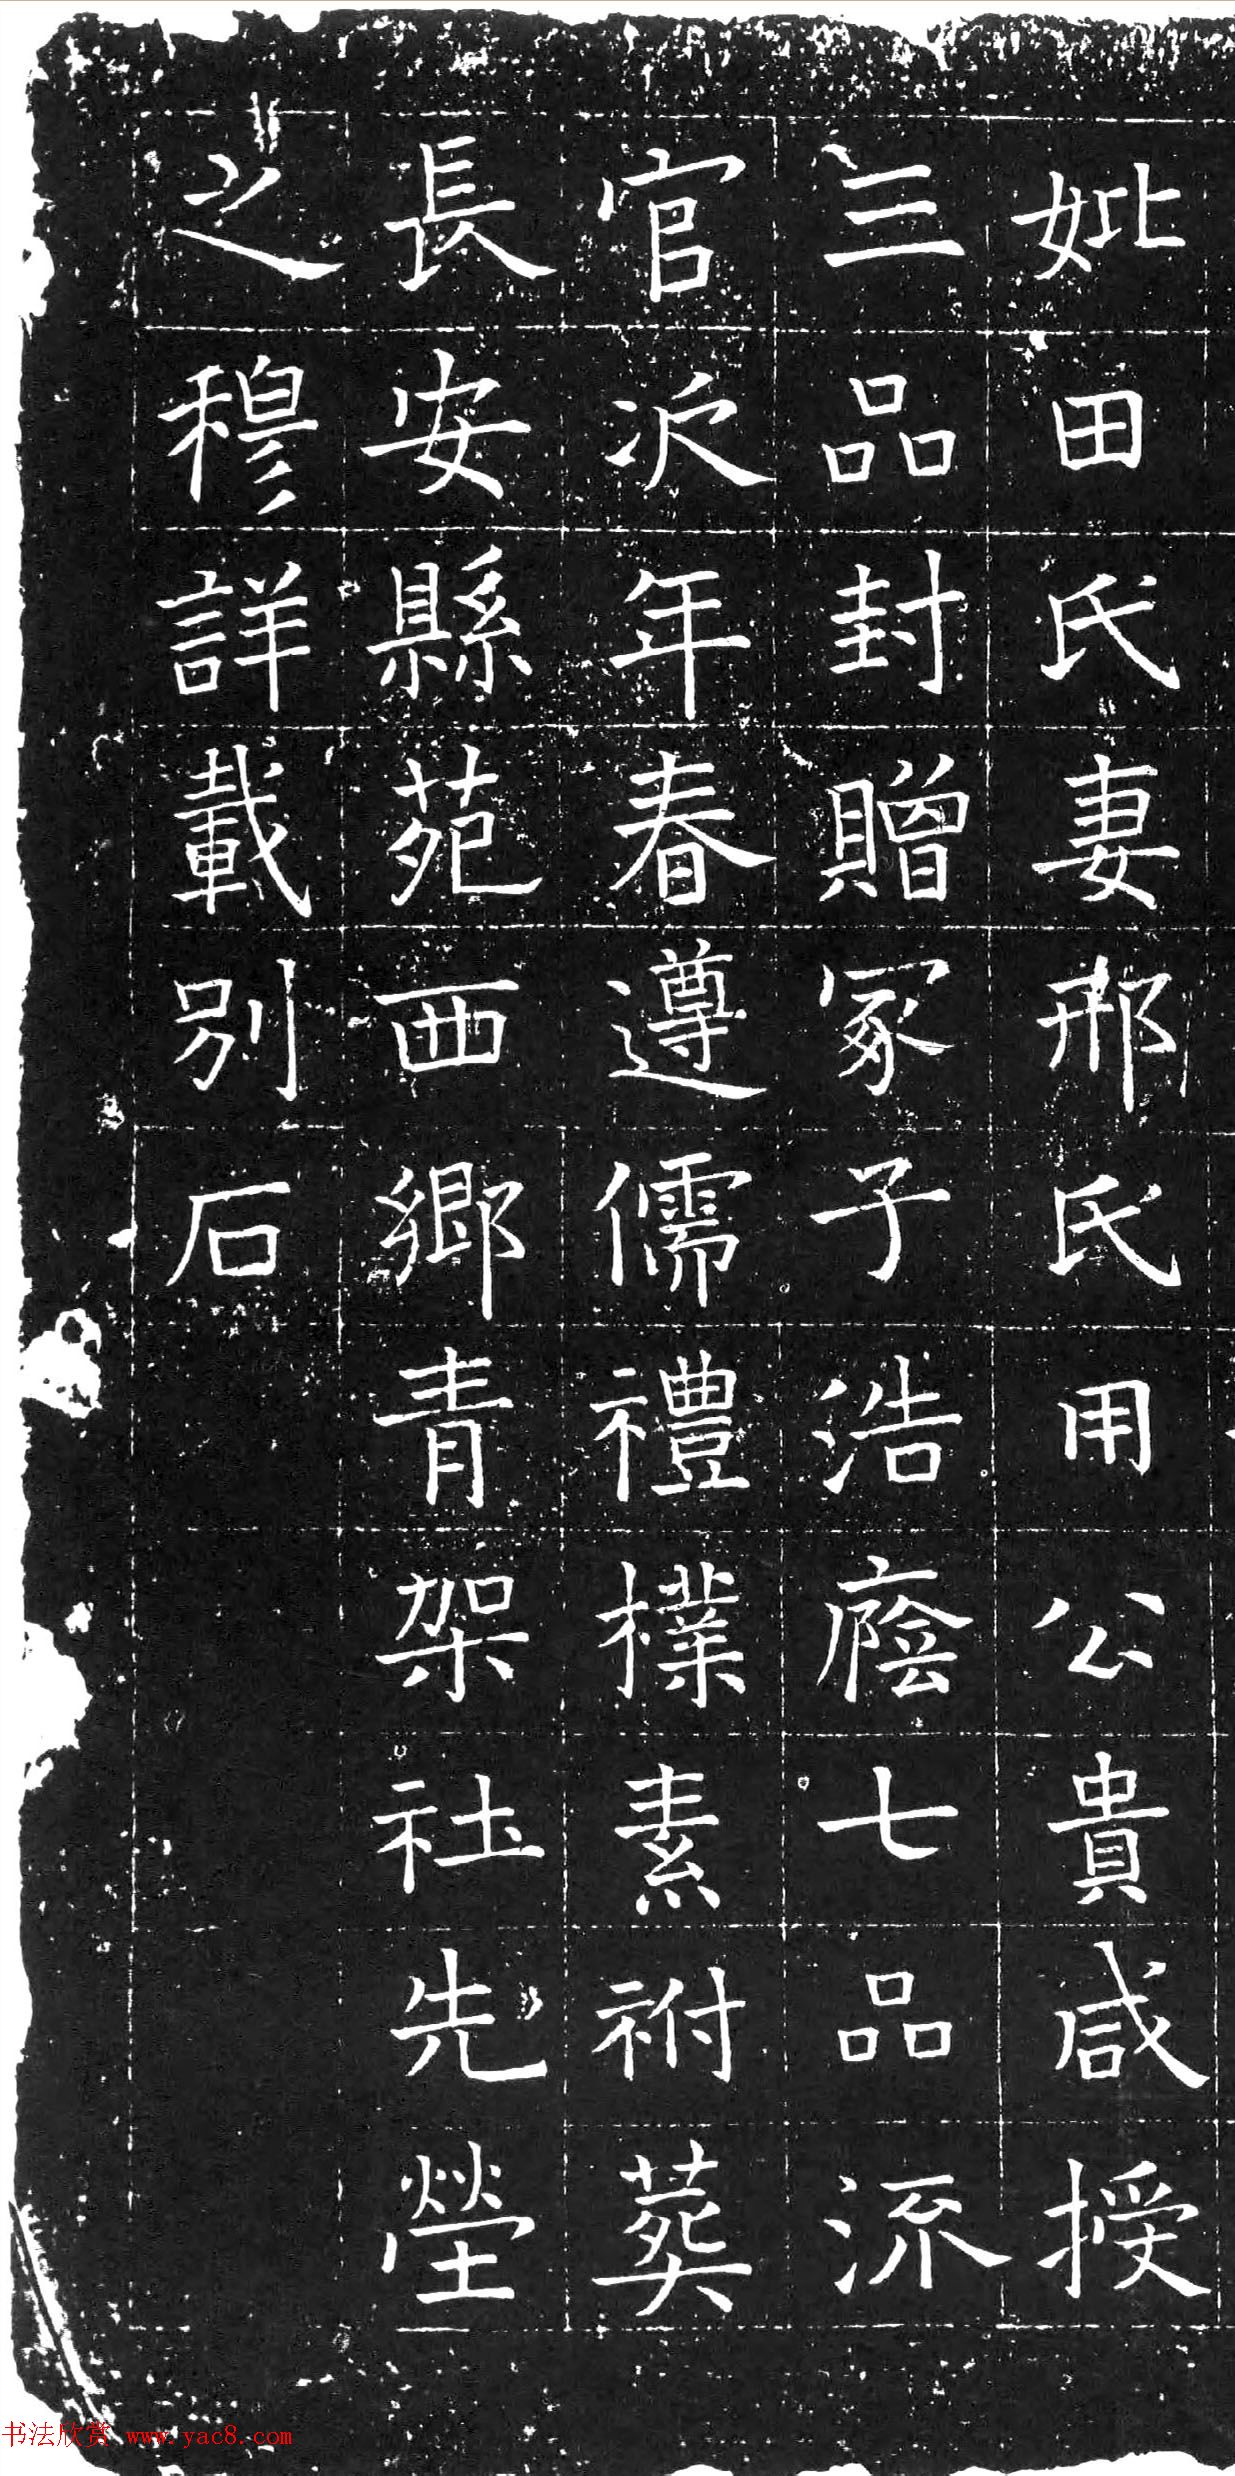 妣田氏妻邢氏用公貴咸授
三品封贈冢子浩廕七品流
官次年春遵儒禮樸素祔葬
長安縣苑西鄉青架社先塋
之穆詳載別石
书法欣赏 www.yac8.com